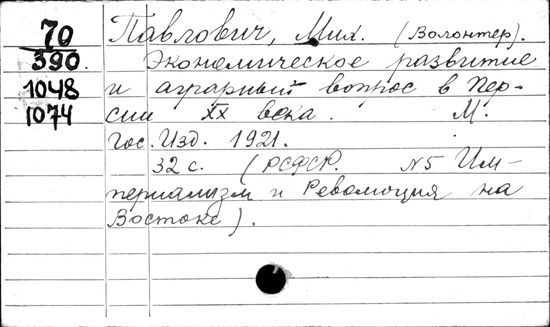 70
390.
1048
1074
Павлович, Мих. (Волонтер).
Экономическое развитие
и аграрный вопрос в Пер-
сии XX века. М.
Гос. Изд. 1921.
32 с. (РСФСР. N5 Им-
периализм и Революция на
Востоке).